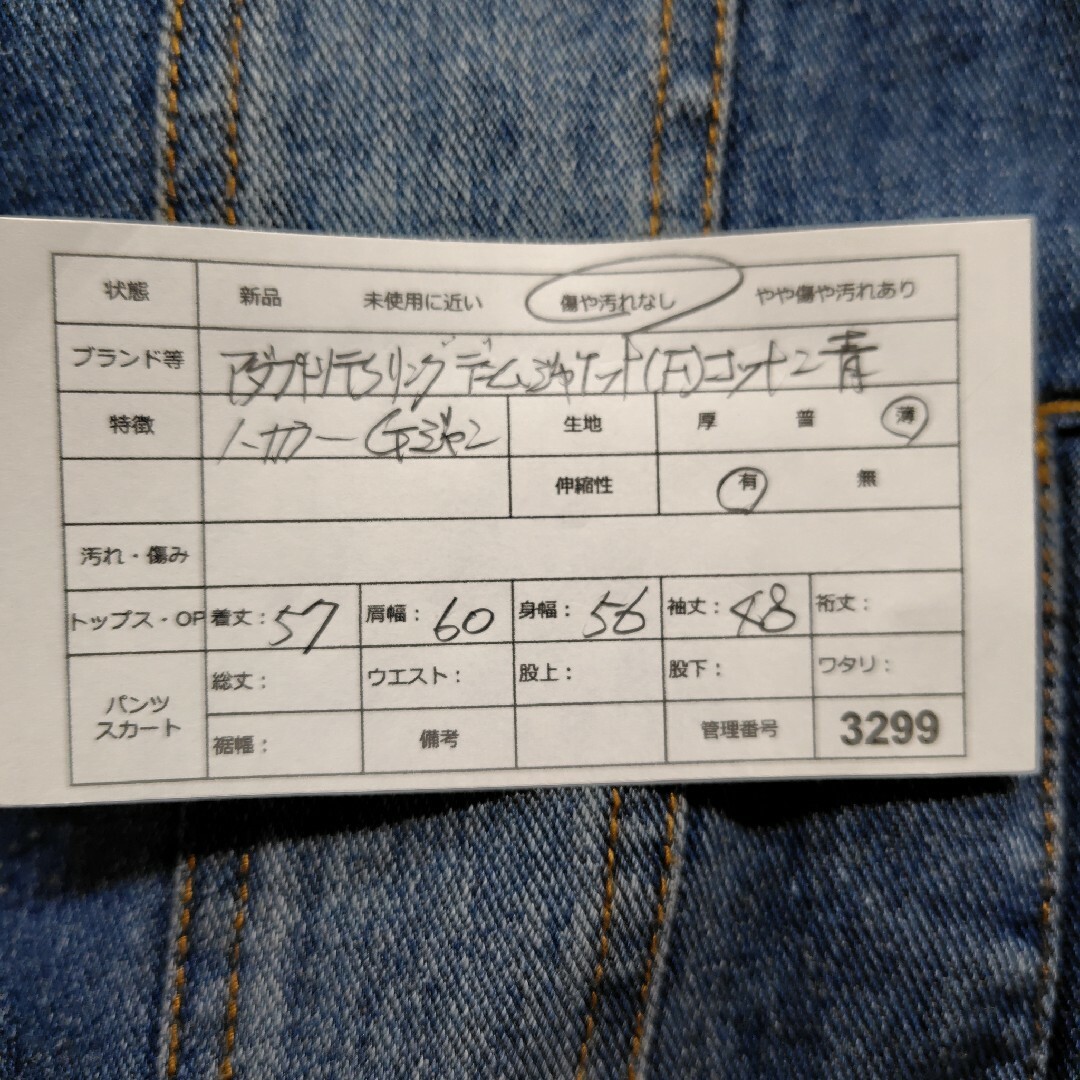 状態 新品 未使用に近い 傷や汚れなし やや傷や汚れあり
ブランド等 アダプトリテーリング デニムジャケット(F)コットン青
特徴 ノーカラー Gジャン 生地 厚 普 薄
伸縮性 有 無
汚れ・傷み
トップス・OP 着丈:57 肩幅:60 身幅:56 袖丈:48 裄丈:
パンツ スカート 総丈: ウエスト: 股上: 股下: ワタリ:
裾幅: 備考 管理番号 3299